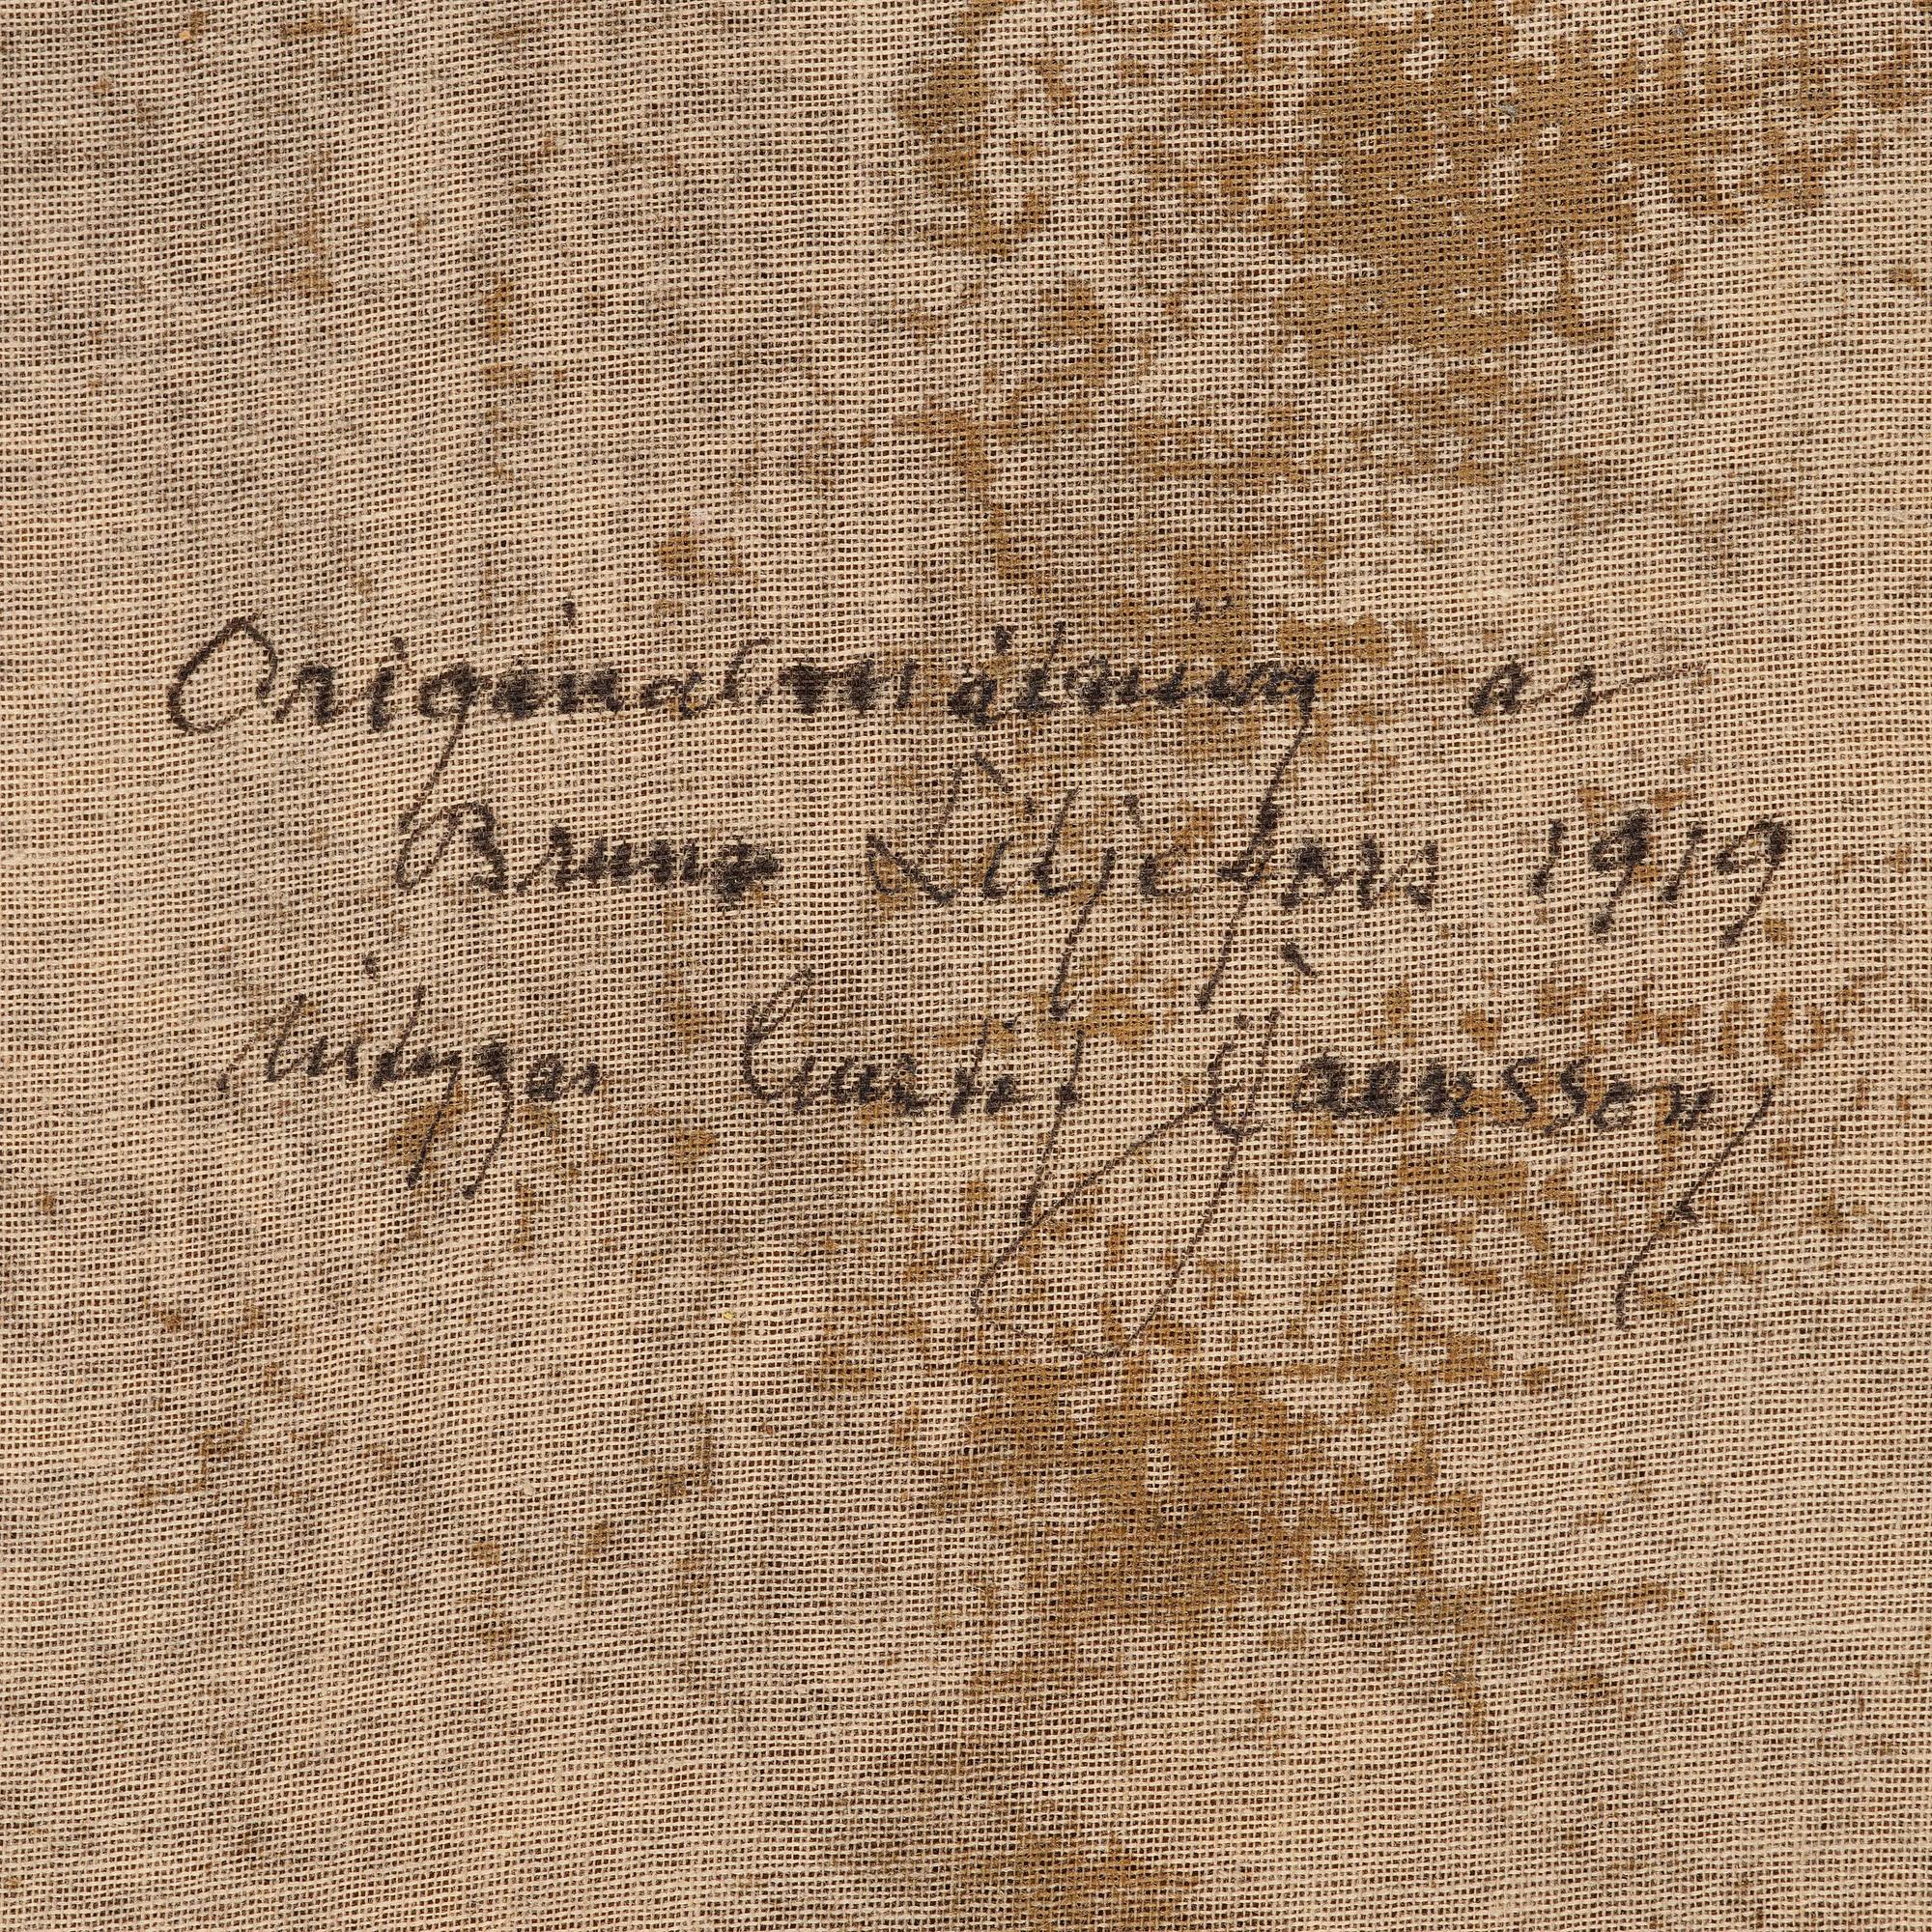 Originalmålning av
Bruno Liljefors 1919
Intygas Curth Jaensson